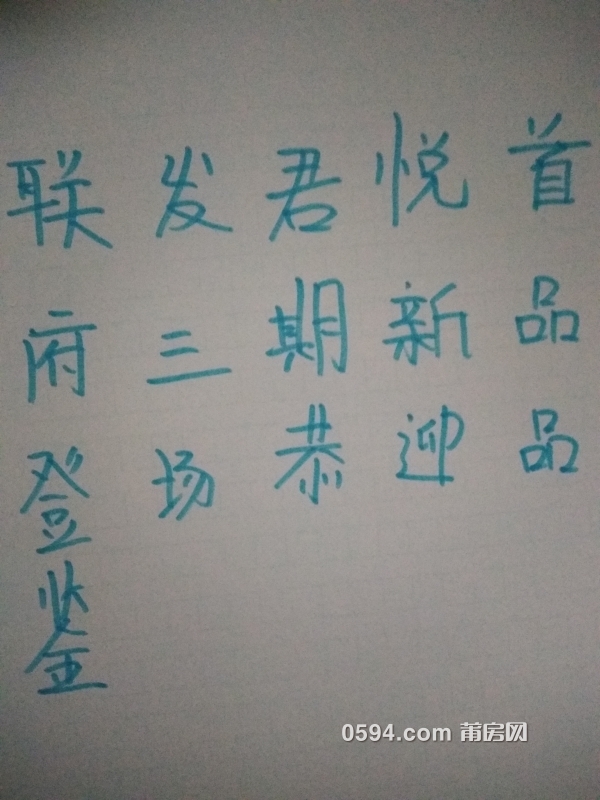 联发君悦首
府三期新品
登场恭迎品
鉴
0594.com 莆房网